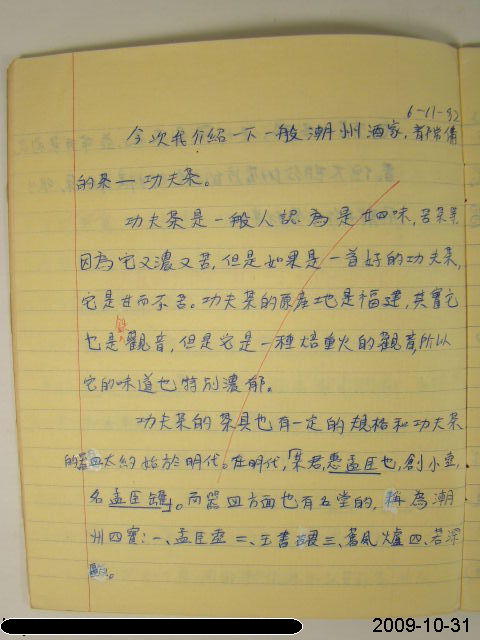 6-11-92
今次我介紹一下一般潮州酒家，都常備
的茶——功夫茶。
功夫茶是一般人認為是廿四味，苦茶等，
因為它又濃又苦，但是如果是一首好的功夫茶，
它是甘而不苦。功夫茶的原產地是福建，其實它
也是鐵觀音，但是它是一種焙重火的觀音，所以
它的味道也特別濃郁。
功夫茶的茶具也有一定的規格和功夫茶
的器皿大約始於明代。在明代，「某君，惠孟臣也，創小壺，
名孟臣罐」。而器皿方面也有名堂的，稱為潮
州四寶：一、孟臣壺 二、玉書 三、舊風爐 四、若深
2009-10-31